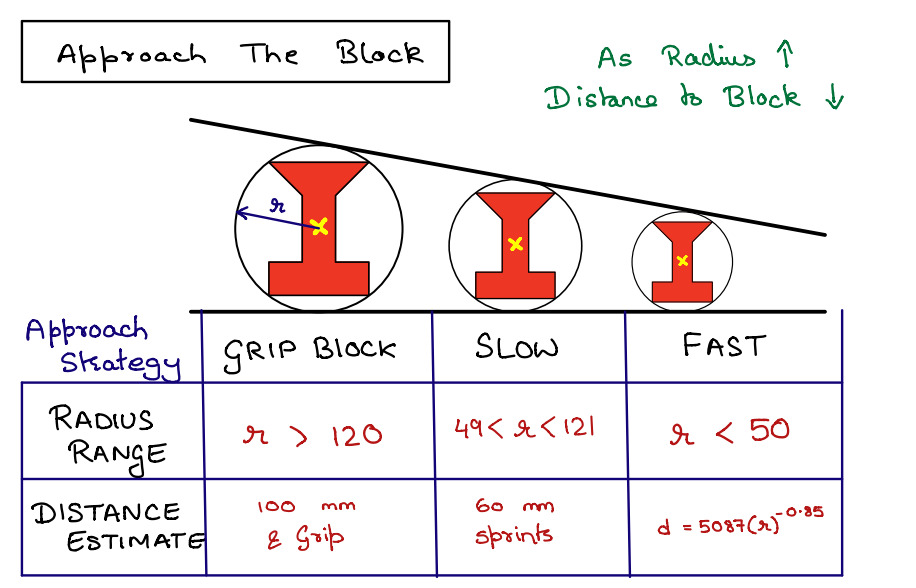 Approach The Block
As Radius ↑
Distance to Block ↓
r
Approach
Strategy
GRIP BLOCK
SLOW
FAST
RADIUS
RANGE
r > 120
49 < r < 121
r < 50
DISTANCE
ESTIMATE
100 mm
& Grip
60 mm
sprints
d = 5087(r)^-0.85